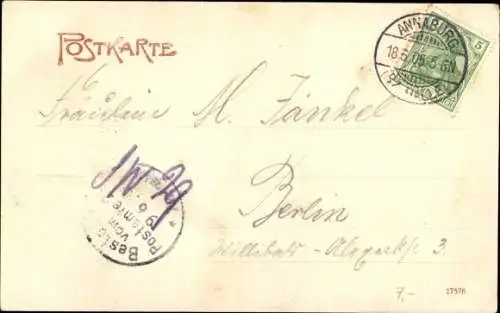 POSTKARTE
ANNABURG
18.5.05. 5-6N
5
Fräulein M. Jänkel
Bestellt
vom
Postamte
Berlin
Willibald-Alexisstr. 3.
7,-
27576